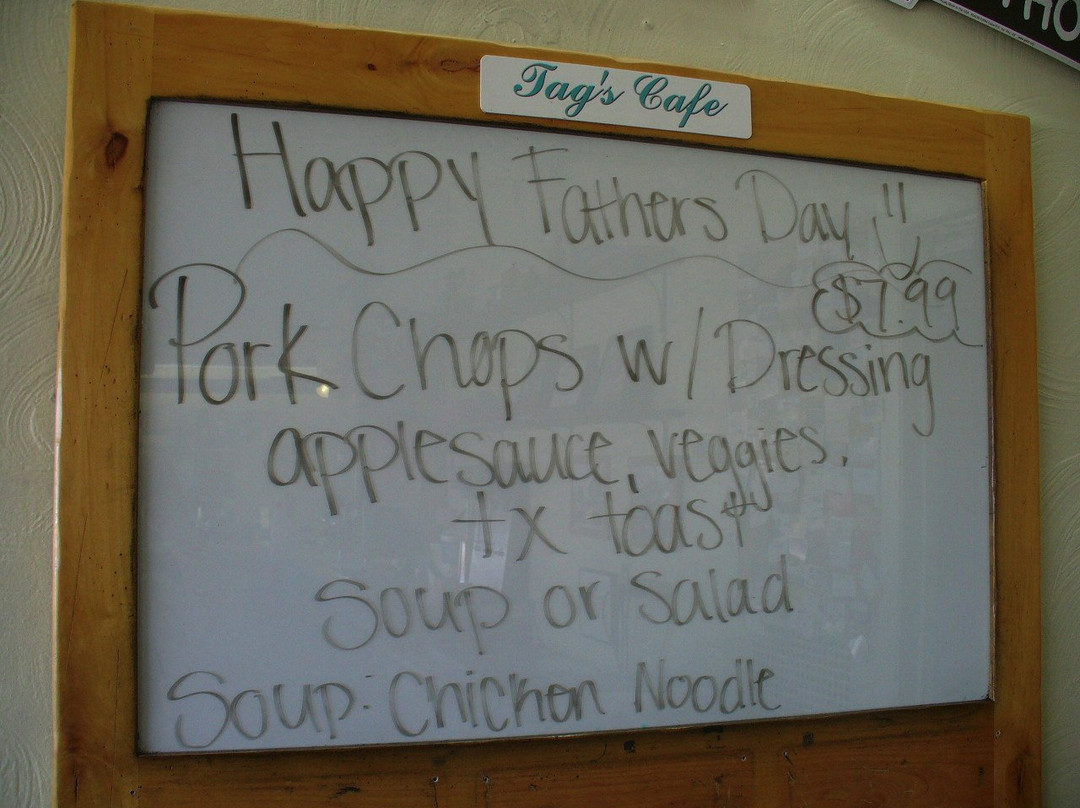 Tag's Cafe
Happy Fathers Day !!
$7.99
Pork Chops w/ Dressing
applesauce, veggies,
tx toast
Soup or Salad
Soup: Chicken Noodle